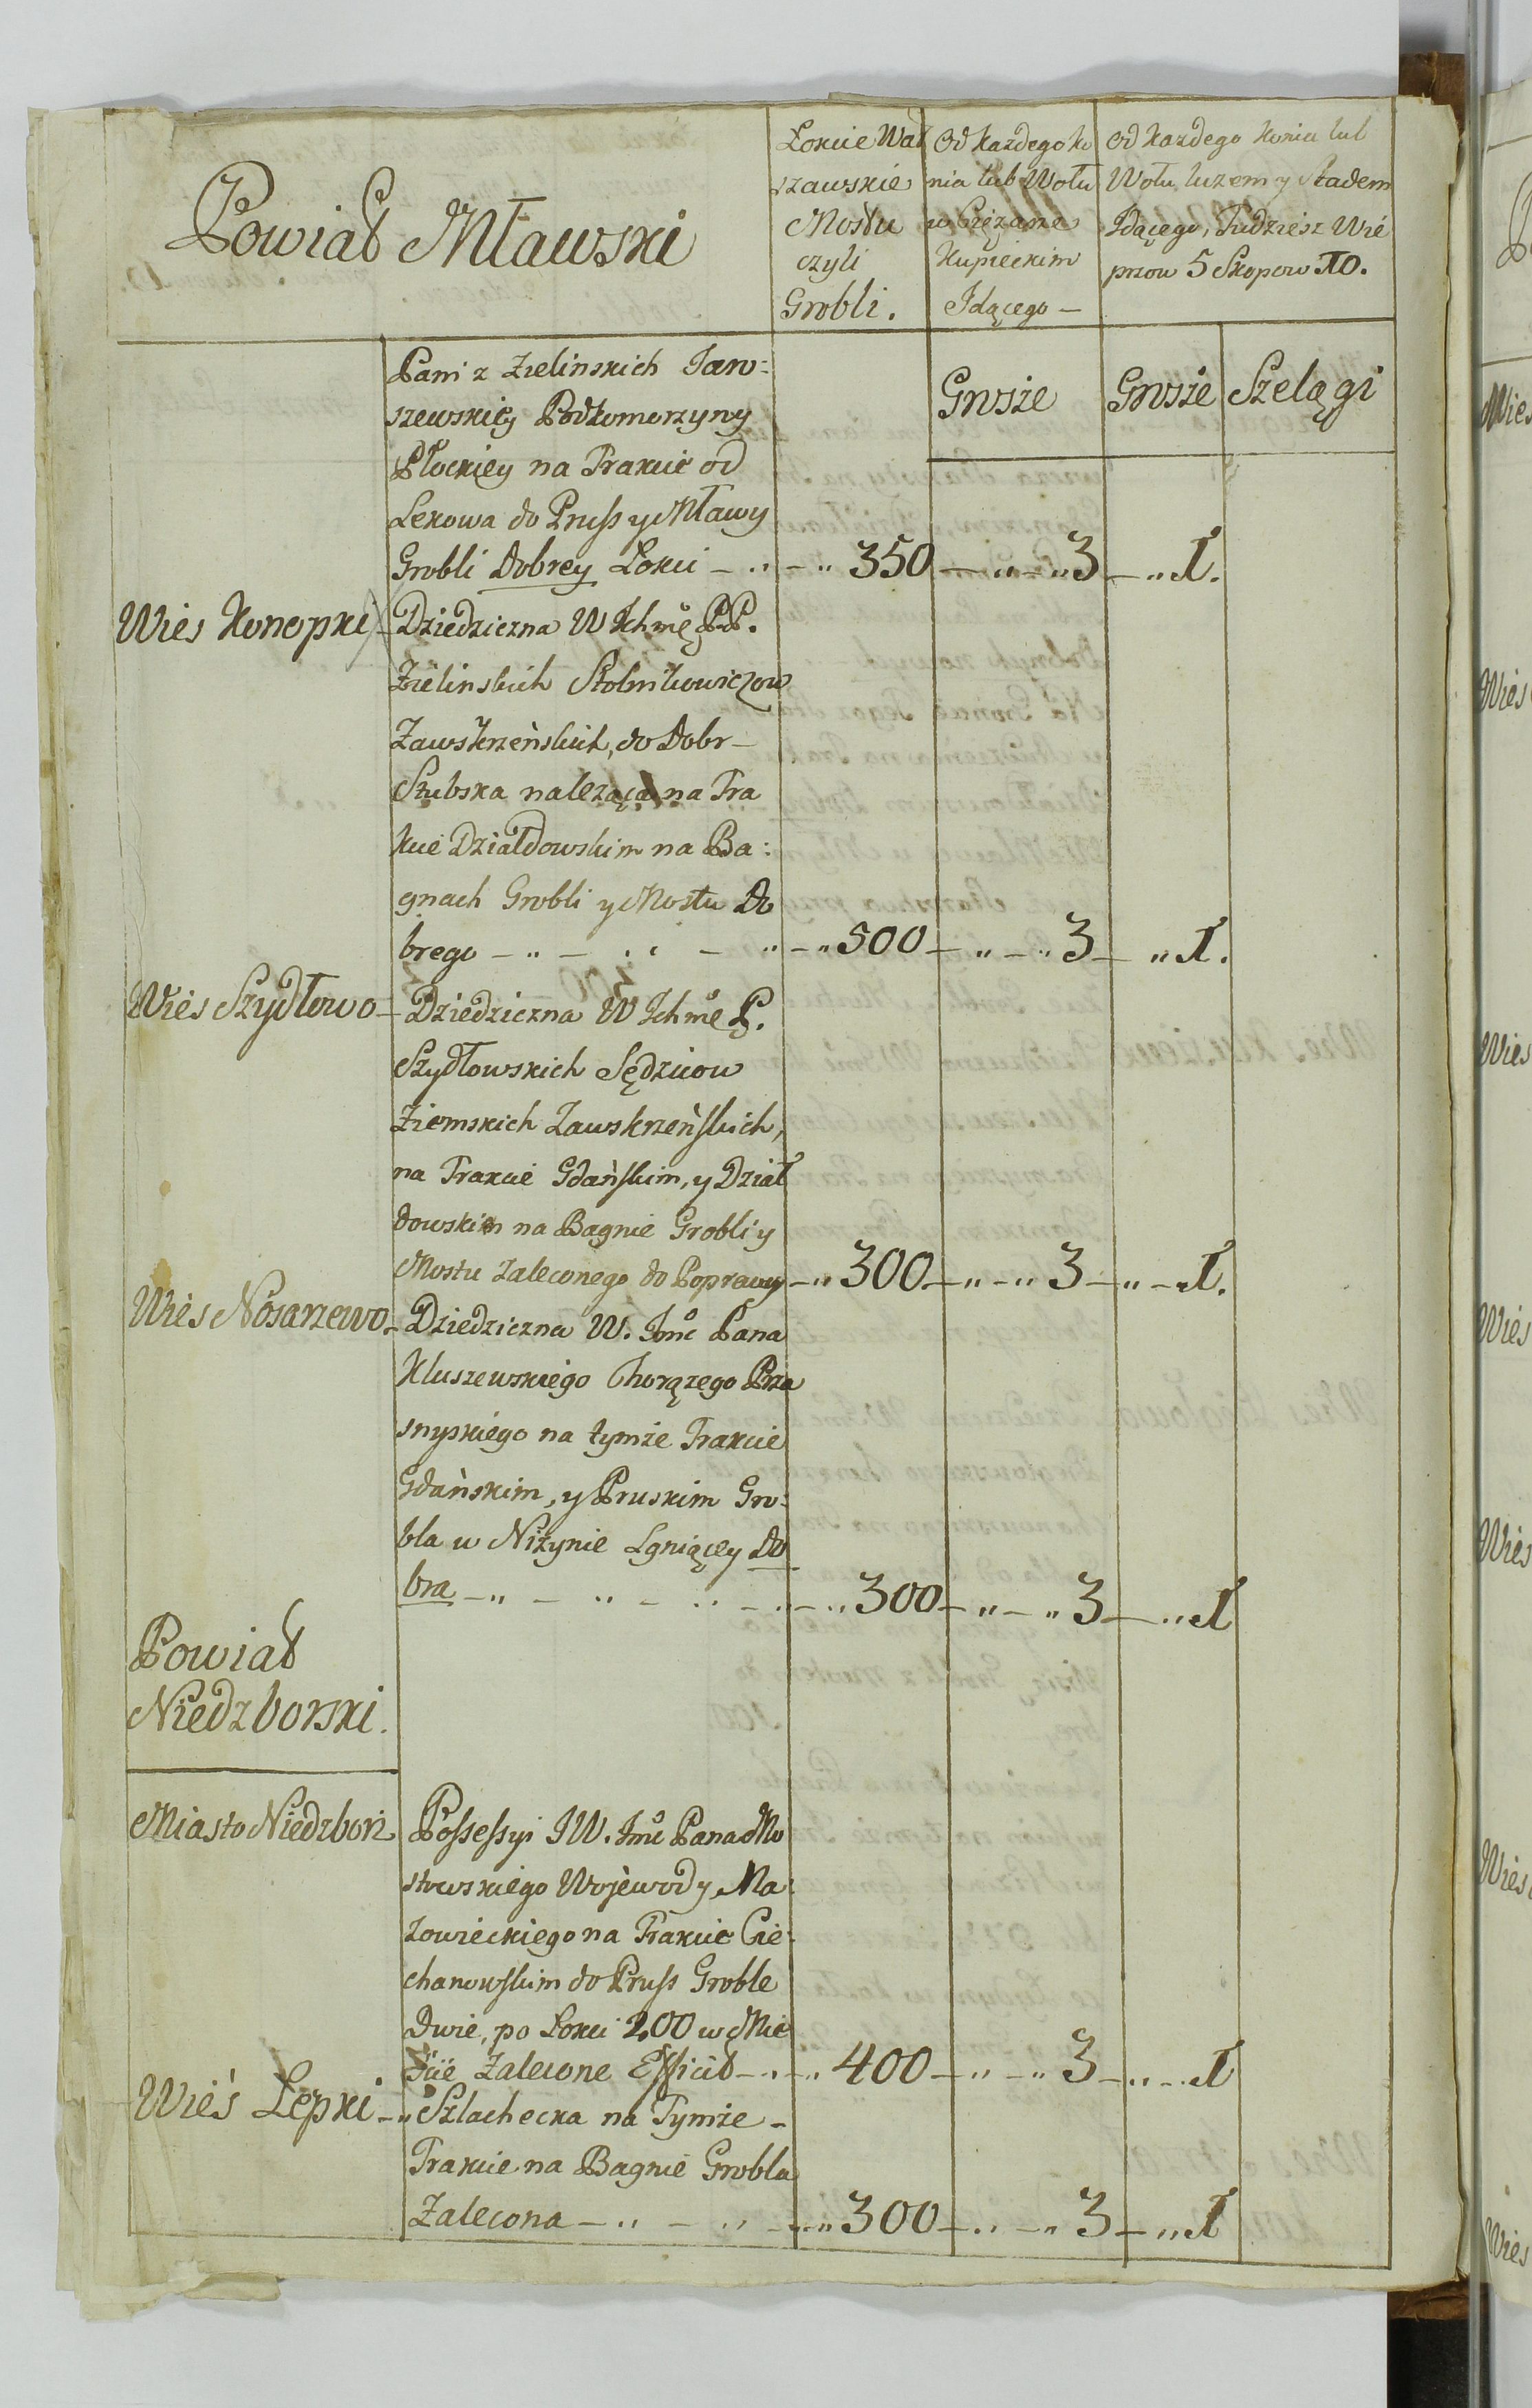 Powiat Mławski
Łokcie War
szawskie
Mostu
czyli
Grobli.
Od każdego ko
nia lub Wołu
w Ciężarze
Kupieckim
Idącego —
Od każdego Konia lub
Wołu, luzem y Stadem
Idącego, Tudziesz Wie
przow 5 Skopow 10.
Grosze
Grosze
Szelągi
Pani z Zielinskich Jaro=
szewskiey Podkomorzyny
Płockiey na Trakcie od
Lekowa do Pruss y Mławy
Grobli Dobrey Łokci – „ – „ 350 – „ – „ 3 – „ 1.
Wies Konopki – Dziedziczna W Ichmę PP.
Zielinskich Stolnikowiczow
Zawskrzeńskich, do Dobr –
Stubska nalezącą na Tra
kcie Działdowskim na Ba:
gnach Grobli y Mostu Do
brego – „ – „ – „ – „ 500 – „ – „ 3 – „ 1.
Wies Szydłowo – Dziedziczna W Ichmę P.
Szydłowskich Sędzicow
Ziemskich Zawskrzeńskich,
na Trakcie Gdańskim, y Dział
dowskim na Bagnie Grobli y
Mostu zaleconego do Poprawy – „ 300 – „ – „ 3 – „ – 1.
Wies Nosarzewo – Dziedziczna W. Jmć Pana
Kluszewskiego Chorązego Prza
snyskiego na tymże Trakcie
Gdańskim, y Pruskim Gro:
bla w Niżynie Lgniącey Do
bra – „ – „ – „ – „ – „ 300 – „ – „ 3 – „ 1
Powiat
Niedzborski.
Miasto Niedzborż Possessyi JW. Jmć Pana Mo
stowskiego Wojewody Ma:
zowieckiego na Trakcie Cie:
chanowskim do Pruss Groble
Dwie, po Łokci 200 w Mie
ście Zalecone Efficit – „ – „ 400 – „ – „ 3 – „ – 1
Wieś Łepki – „ Szlachecka na Tymże –
Trakcie na Bagnie Grobla
Zalecona – „ – „ – „ 300 – „ – „ 3 – „ 1
Wies
Wies
Wies
Wies
Wies
Wies
Wies